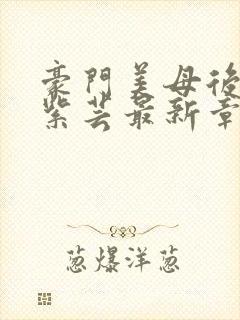 豪門美母後
紫芸最新章
葱爆洋葱